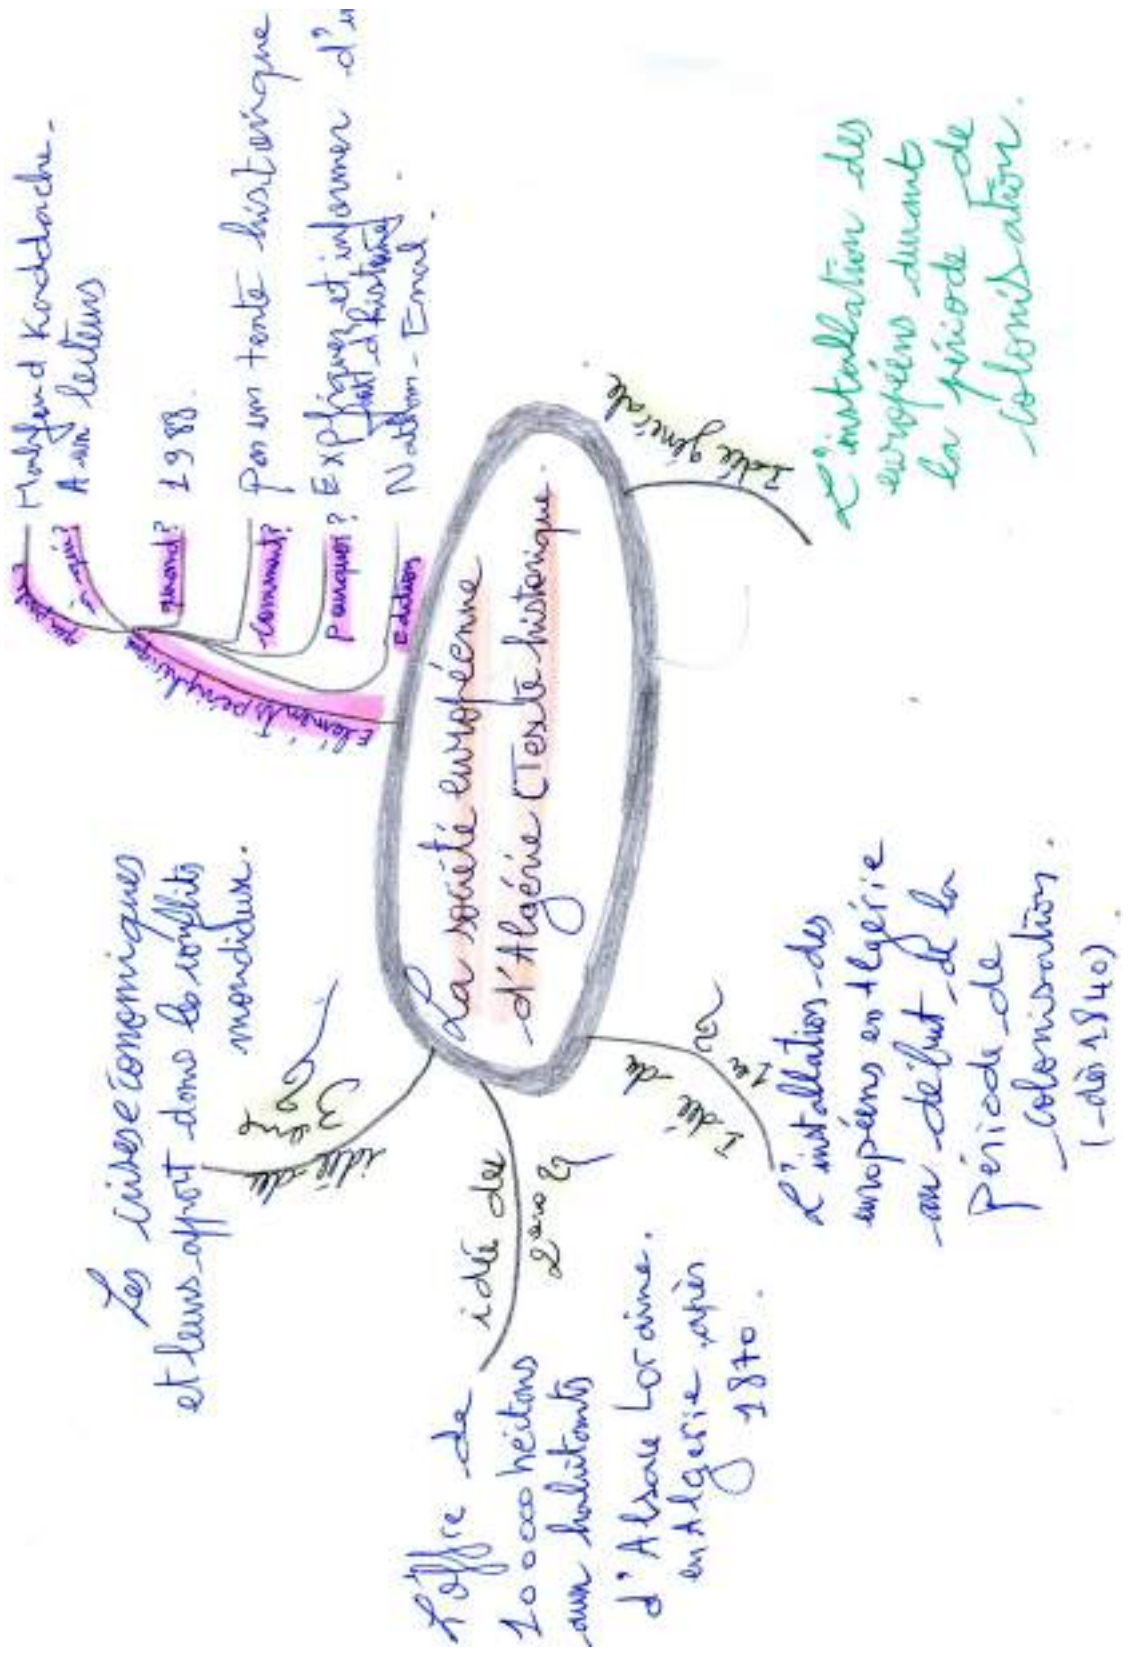 La société européenne
d'Algérie (Texte historique
Eléments périphérique
qui parle?
Mahfoud Kaddache.
à qui?
Aux lecteurs
quand?
1988.
comment?
Par un texte historique
Pourquoi?
Expliquez et informer d'u
fait d'histoire
Edition
Nathan-Enal.
Idée générale
L'installation des
européens durant
la période de
colonisation.
Idée de
1er §
L'installation des
européens en Algérie
au début de la
période de
colonisation.
(dès 1840)
idée des
2ème §
L'offre de
100000 hectans
aux habitants
d'Alsace Loraine.
en Algerie après
1870.
idée de
3ème §
Les crises économiques
et leurs apport dans les conflits
mondiaux.